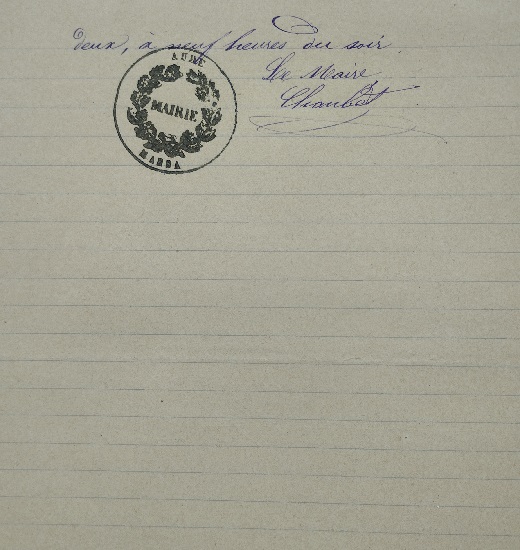 deux, à neuf heures du soir.
Le Maire
Chaubet
AUDE
MAIRIE
MARSA